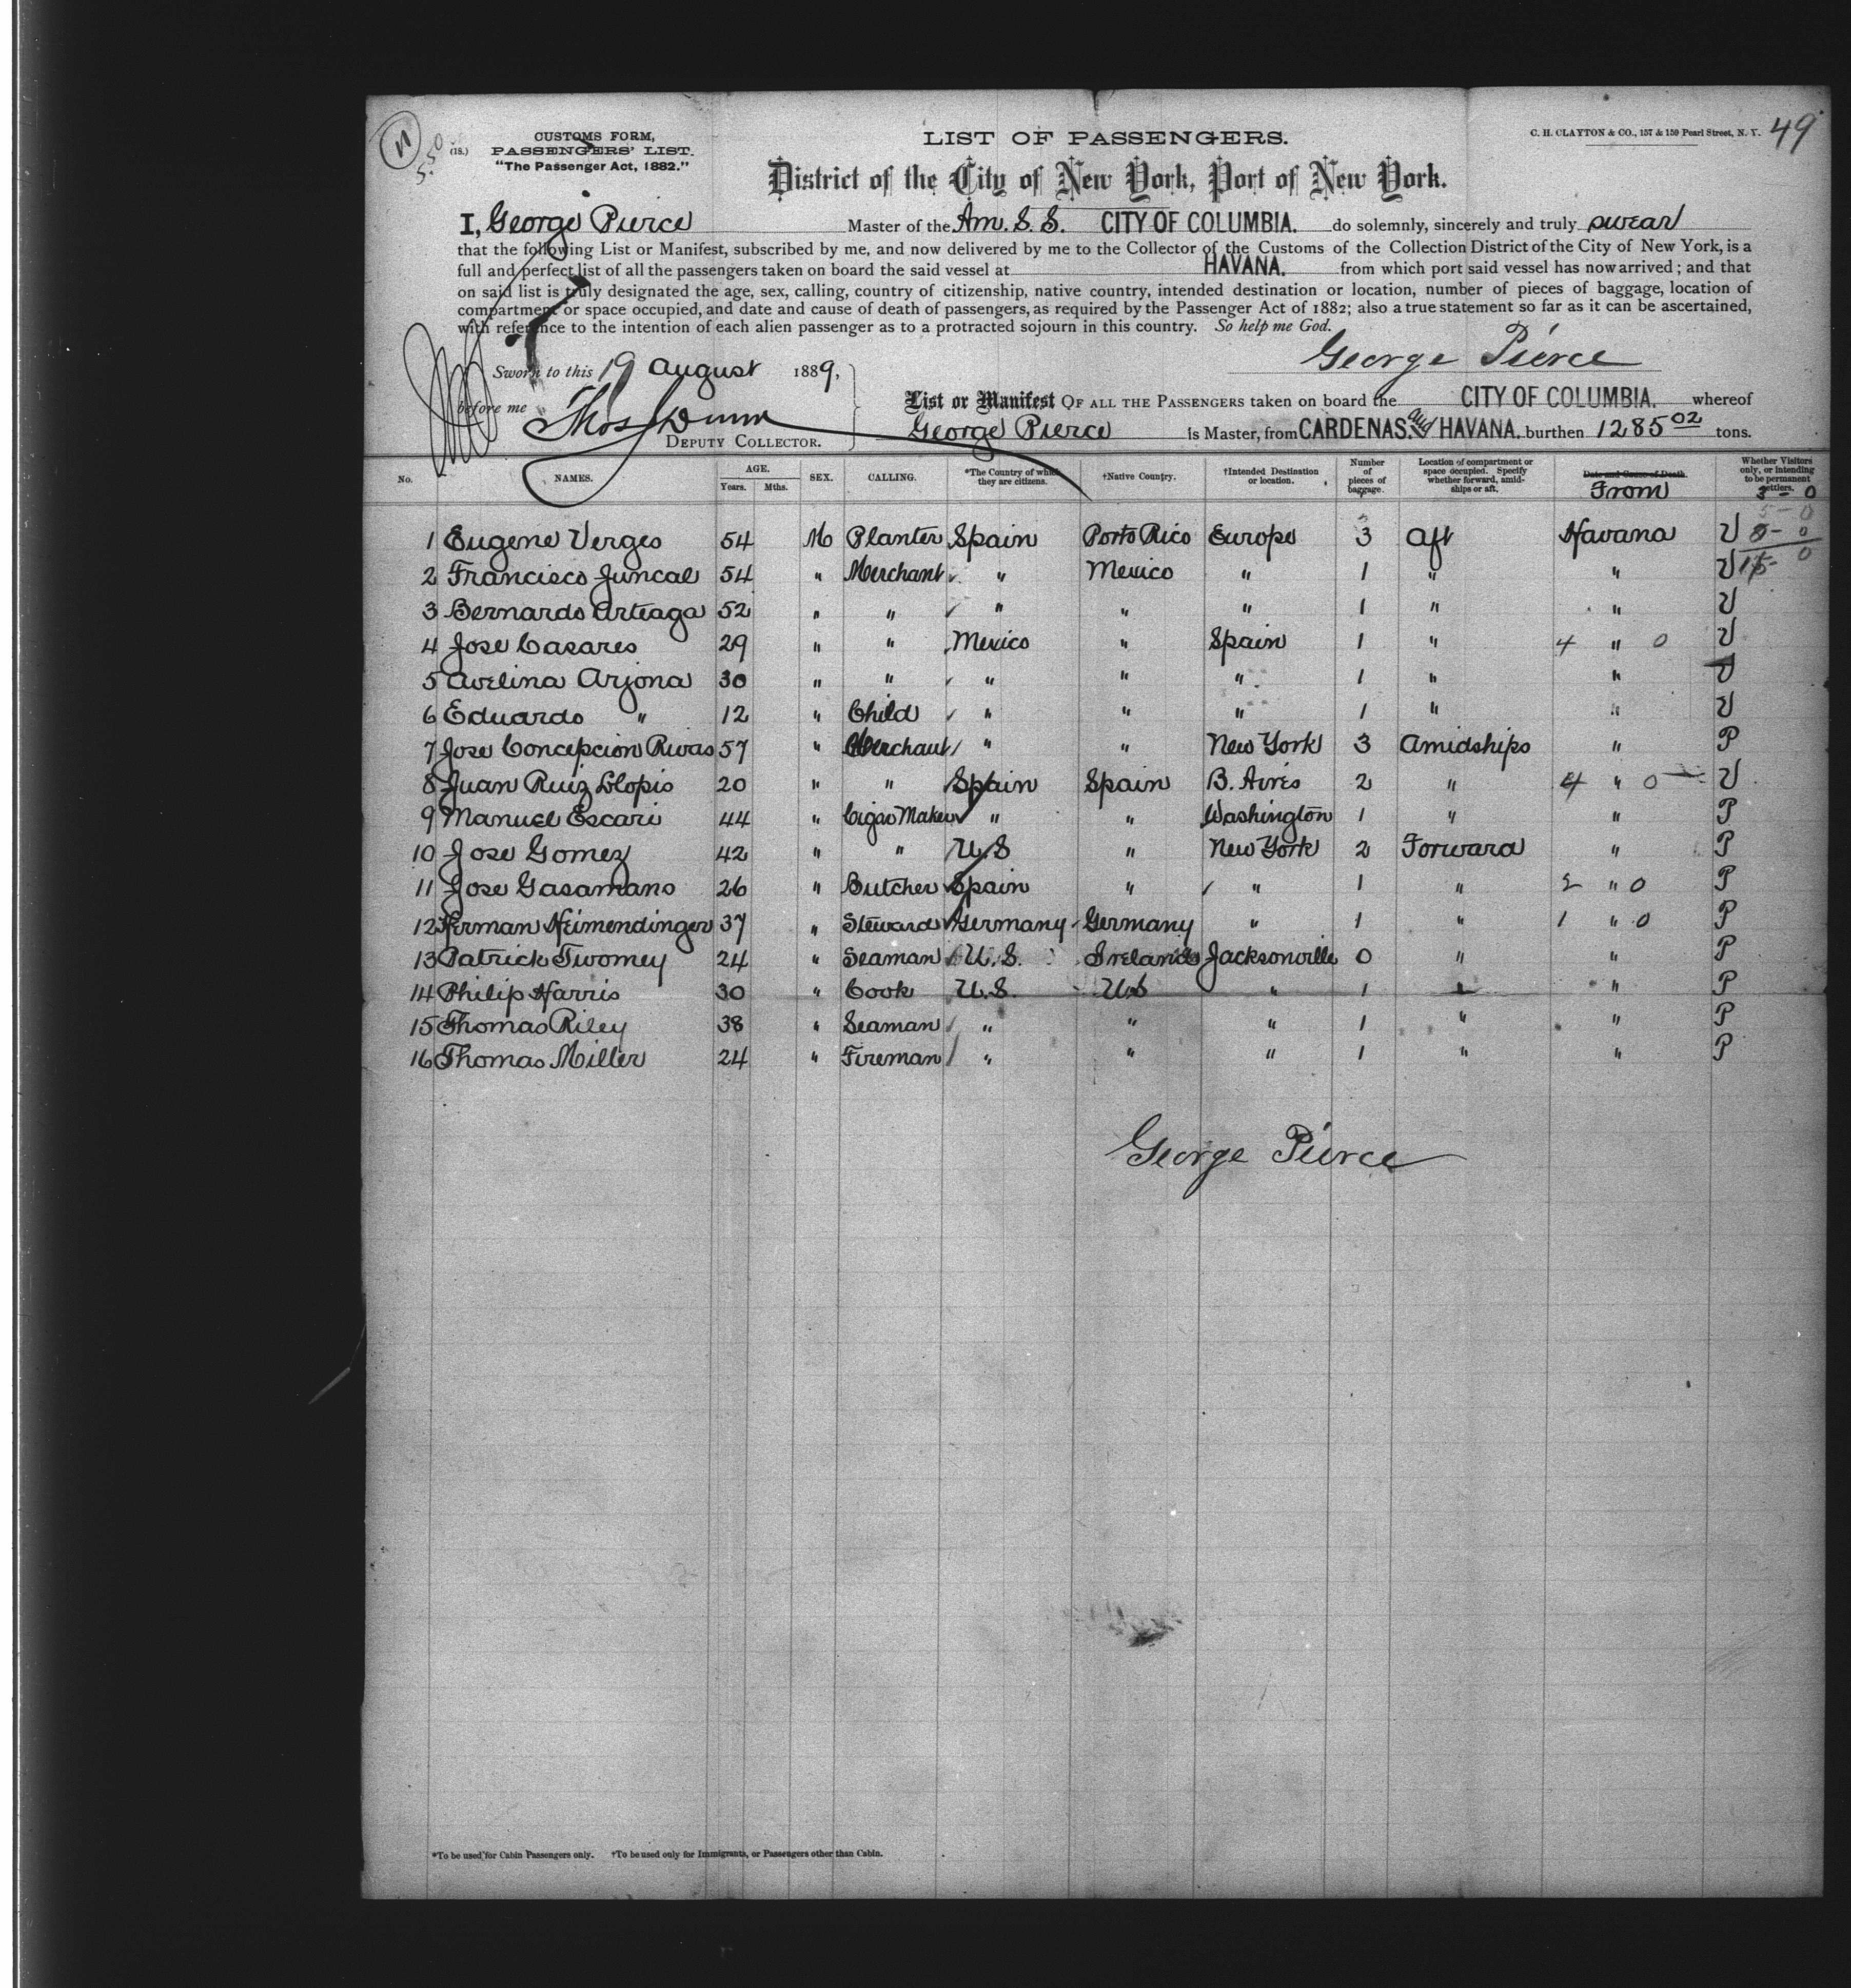 CUSTOMS FORM,
(18.) PASSENGERS' LIST.
"The Passenger Act, 1882."
LIST OF PASSENGERS.
C. H. CLAYTON & CO., 157 & 159 Pearl Street, N. Y. 49
550
District of the City of New York, Port of New York.
I, George Pierce Master of the Am. S. S. CITY OF COLUMBIA. do solemnly, sincerely and truly swear
that the following List or Manifest, subscribed by me, and now delivered by me to the Collector of the Customs of the Collection District of the City of New York, is a
full and perfect list of all the passengers taken on board the said vessel at HAVANA. from which port said vessel has now arrived; and that
on said list is truly designated the age, sex, calling, country of citizenship, native country, intended destination or location, number of pieces of baggage, location of
compartment or space occupied, and date and cause of death of passengers, as required by the Passenger Act of 1882; also a true statement so far as it can be ascertained,
with reference to the intention of each alien passenger as to a protracted sojourn in this country. So help me God.
George Pierce
Sworn to this 19 August 1889,
before me Thos Dunn
DEPUTY COLLECTOR.
List or Manifest OF ALL THE PASSENGERS taken on board the CITY OF COLUMBIA. whereof
George Pierce is Master, from CARDENAS. and HAVANA. burthen 1285 02 tons.
No. NAMES. AGE. Years. Mths. SEX. CALLING. *The Country of which they are citizens. †Native Country. †Intended Destination or location. Number of pieces of baggage. Location of compartment or space occupied. Specify whether forward, amidships or aft. Date and Cause of Death. From Whether Visitors only, or intending to be permanent settlers.
1 Eugene Verges 54 M Planter Spain Porto Rico Europe 3 Aft Havana V
2 Francisco Juncal 54 " Merchant " Mexico " 1 " " V
3 Bernardo Arteaga 52 " " " " " 1 " " V
4 Jose Casares 29 " " Mexico " Spain 1 " 4 " 0 V
5 Avelina Arjona 30 " " " " " 1 " " V
6 Eduardo " 12 " Child " " " 1 " " V
7 Jose Concepcion Rivas 57 " Merchant " " New York 3 Amidships " P
8 Juan Ruiz Llopis 20 " " Spain Spain B. Aires 2 " 4 " 0 V
9 Manuel Escari 44 " Cigar Maker " " Washington 1 " " P
10 Jose Gomez 42 " " U.S " New York 2 Forward " P
11 Jose Gasamans 26 " Butcher Spain " " 1 " 2 " 0 P
12 Herman Heimendinger 37 " Steward Germany Germany " 1 " 1 " 0 P
13 Patrick Twomey 24 " Seaman U.S. Ireland Jacksonville 0 " " P
14 Philip Harris 30 " Cook U.S. US " 1 " " P
15 Thomas Riley 38 " Seaman " " " 1 " " P
16 Thomas Miller 24 " Fireman " " " 1 " " P
George Pierce
*To be used for Cabin Passengers only. †To be used only for Immigrants, or Passengers other than Cabin.